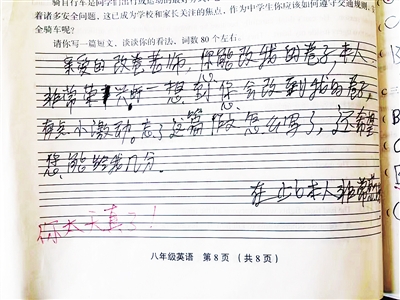 骑自行车是同学们出行或运动的最好方式,
着诸多安全问题,这已成为学校和家长关注的焦点,作为中学生你应该如何遵守交通规则,
全骑车呢?
请你写一篇短文,谈谈你的看法。词数 80 个左右。
亲爱的改善老师,你能改我的卷子,本人
非常荣兴,一想到您会改到我的卷子,
有点小激动。忘了这篇作文怎么写了,还希望
您能给我几分。
在此本人非常感
你太天真了!
八年级英语 第 8 页 (共 8 页)